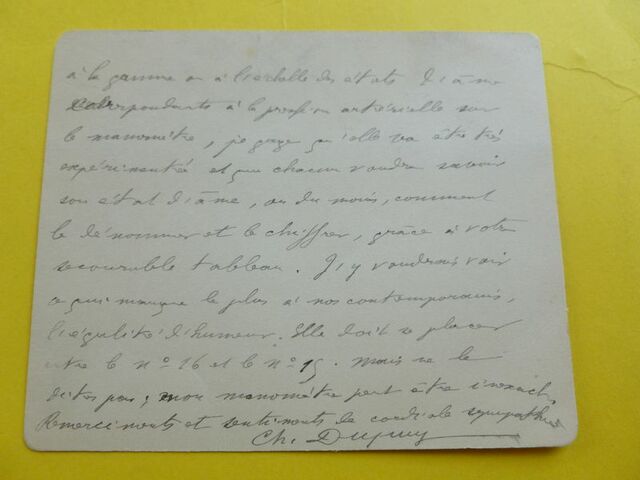 à la gamme ou à l'échelle des états d'âme
correspondants à la pression artérielle sur
le manomètre, je gage qu'elle va être très
expérimenté et que chacun voudra savoir
son état d'âme, ou du moins, comment
le dénommer et le chiffrer, grâce à votre
secourable tableau. J'y voudrais voir
ce qui manque le plus à nos contemporains,
l'égalité d'humeur. Elle doit se placer
entre le nº 16 et le nº 15. Mais ne le
dites pas; mon manomètre peut être inexact.
Remerciments et sentiments de cordiale sympathie
Ch. Dupuy